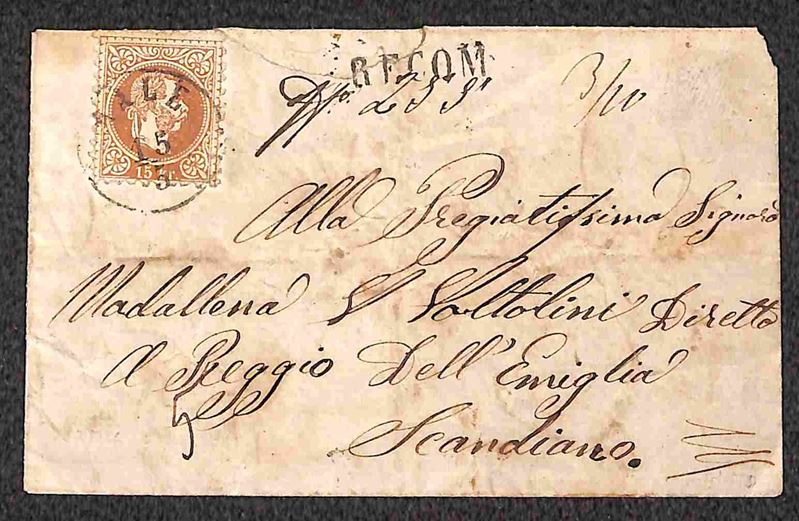 RECOM
3/10
ALE
15
5
15 kr.
Alla Pregiatissima Signora
Madallena Voltolini Diretto
A Reggio Dell'Emiglia
5
Scandiano.